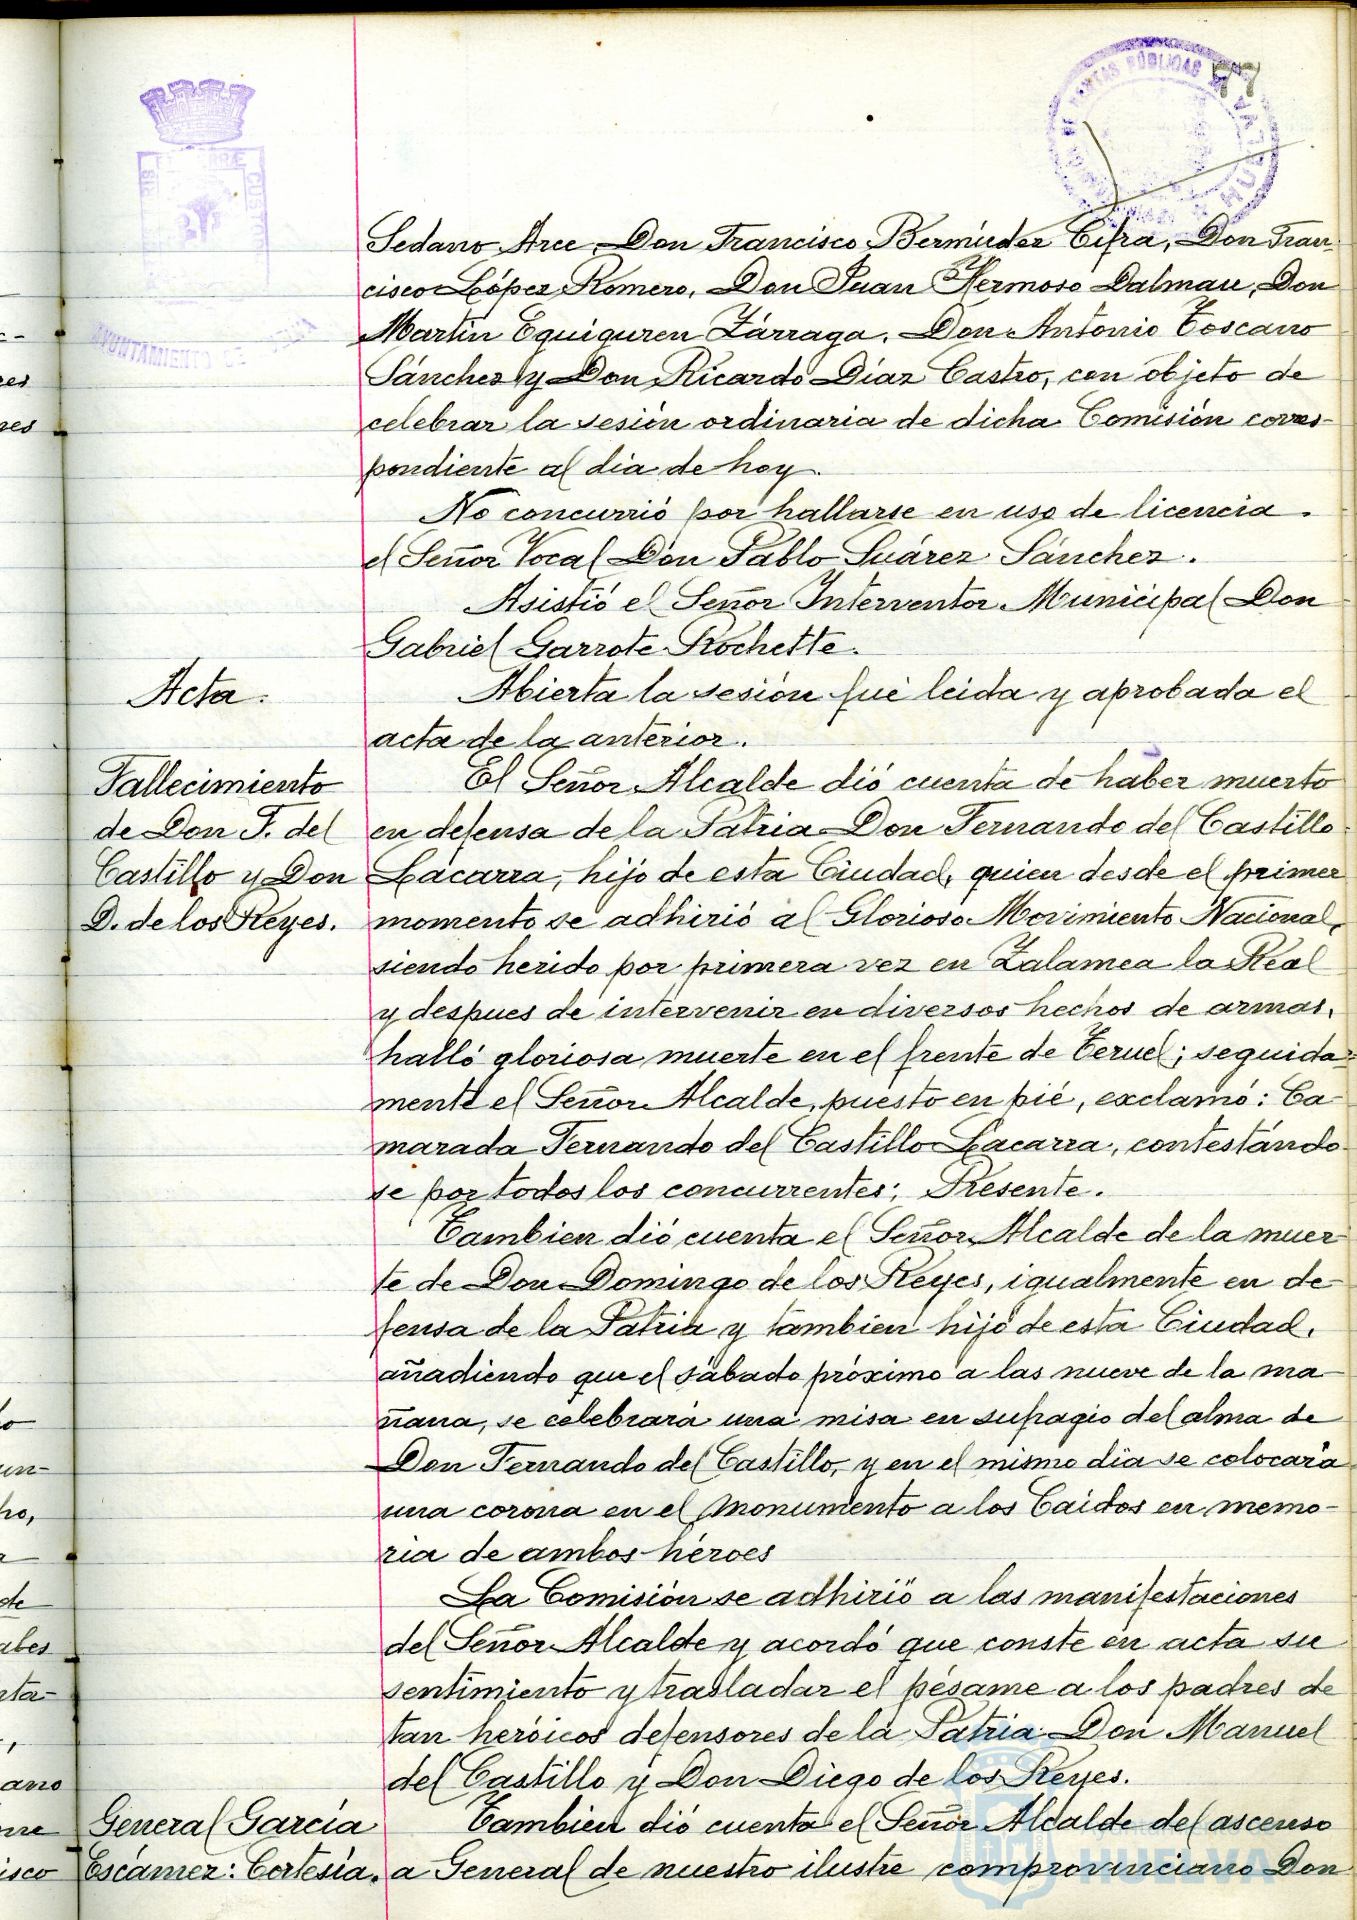 77
Sedano Arce, Don Francisco Bermúdez Cifra, Don Fran-
cisco López Romero, Don Juan Hermoso Dalmau, Don
Martín Eguiguren Zárraga, Don Antonio Toscano
Sánchez y Don Ricardo Díaz Castro, con objeto de
celebrar la sesión ordinaria de dicha Comisión corres-
pondiente al dia de hoy.
No concurrió por hallarse en uso de licencia
el Señor Vocal Don Pablo Suárez Sánchez.
Asistió el Señor Interventor Municipal Don
Gabriel Garrote Rochette.
Acta.
Abierta la sesión fué leida y aprobada el
acta de la anterior.
Fallecimiento
de Don F. del
Castillo y Don
D. de los Reyes.
El Señor Alcalde dió cuenta de haber muerto
en defensa de la Patria Don Fernando del Castillo
Lacarra, hijo de esta Ciudad, quien desde el primer
momento se adhirió al Glorioso Movimiento Nacional,
siendo herido por primera vez en Zalamea la Real
y despues de intervenir en diversos hechos de armas,
halló gloriosa muerte en el frente de Teruel; seguida-
mente el Señor Alcalde, puesto en pié, exclamó: Ca-
marada Fernando del Castillo Lacarra, contestándo-
se por todos los concurrentes; Presente.
Tambien dió cuenta el Señor Alcalde de la muer-
te de Don Domingo de los Reyes, igualmente en de-
fensa de la Patria y tambien hijo de esta Ciudad,
añadiendo que el sábado próximo a las nueve de la ma-
ñana, se celebrará una misa en sufragio del alma de
Don Fernando del Castillo, y en el mismo día se colocará
una corona en el Monumento a los Caidos en memo-
ria de ambos héroes
La Comisión se adhirió a las manifestaciones
del Señor Alcalde y acordó que conste en acta su
sentimiento y trasladar el pésame a los padres de
tan heróicos defensores de la Patria Don Manuel
del Castillo y Don Diego de los Reyes.
General García
Escámez: Cortesía.
Tambien dió cuenta el Señor Alcalde del ascenso
a General de nuestro ilustre comprovinciano Don
AYUNTAMIENTO DE
HUELVA
HUELVA